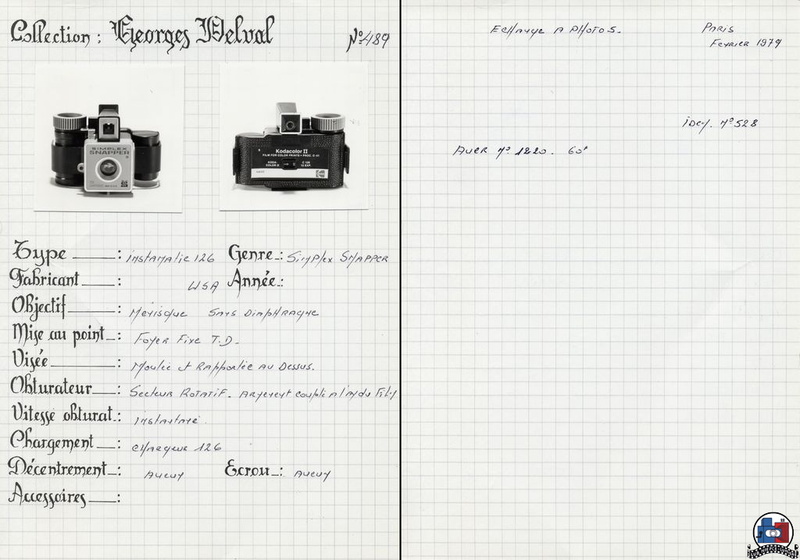 Collection : Georges Delval N° 489
SIMPLEX
SNAPPER
Kodacolor II
FILM FOR COLOR PRINTS
Type : instamatic 126 Genre : Simplex SNAPPER
Fabricant : USA Année :
Objectif : Menisque Sans Diaphragme
Mise au point : Foyer Fixe T.D.
Visée : Moulée et Rapportée au Dessus.
Obturateur : Secteur Rotatif. Armement couplé à l'av du film
Vitesse obturat. : instantané
Chargement : chargeur 126
Décentrement : Aucun Ecrou : Aucun
Accessoires :
Echange A Photos. Paris
Fevrier 1979
idem. n° 528
AUER n° 1220. 60°